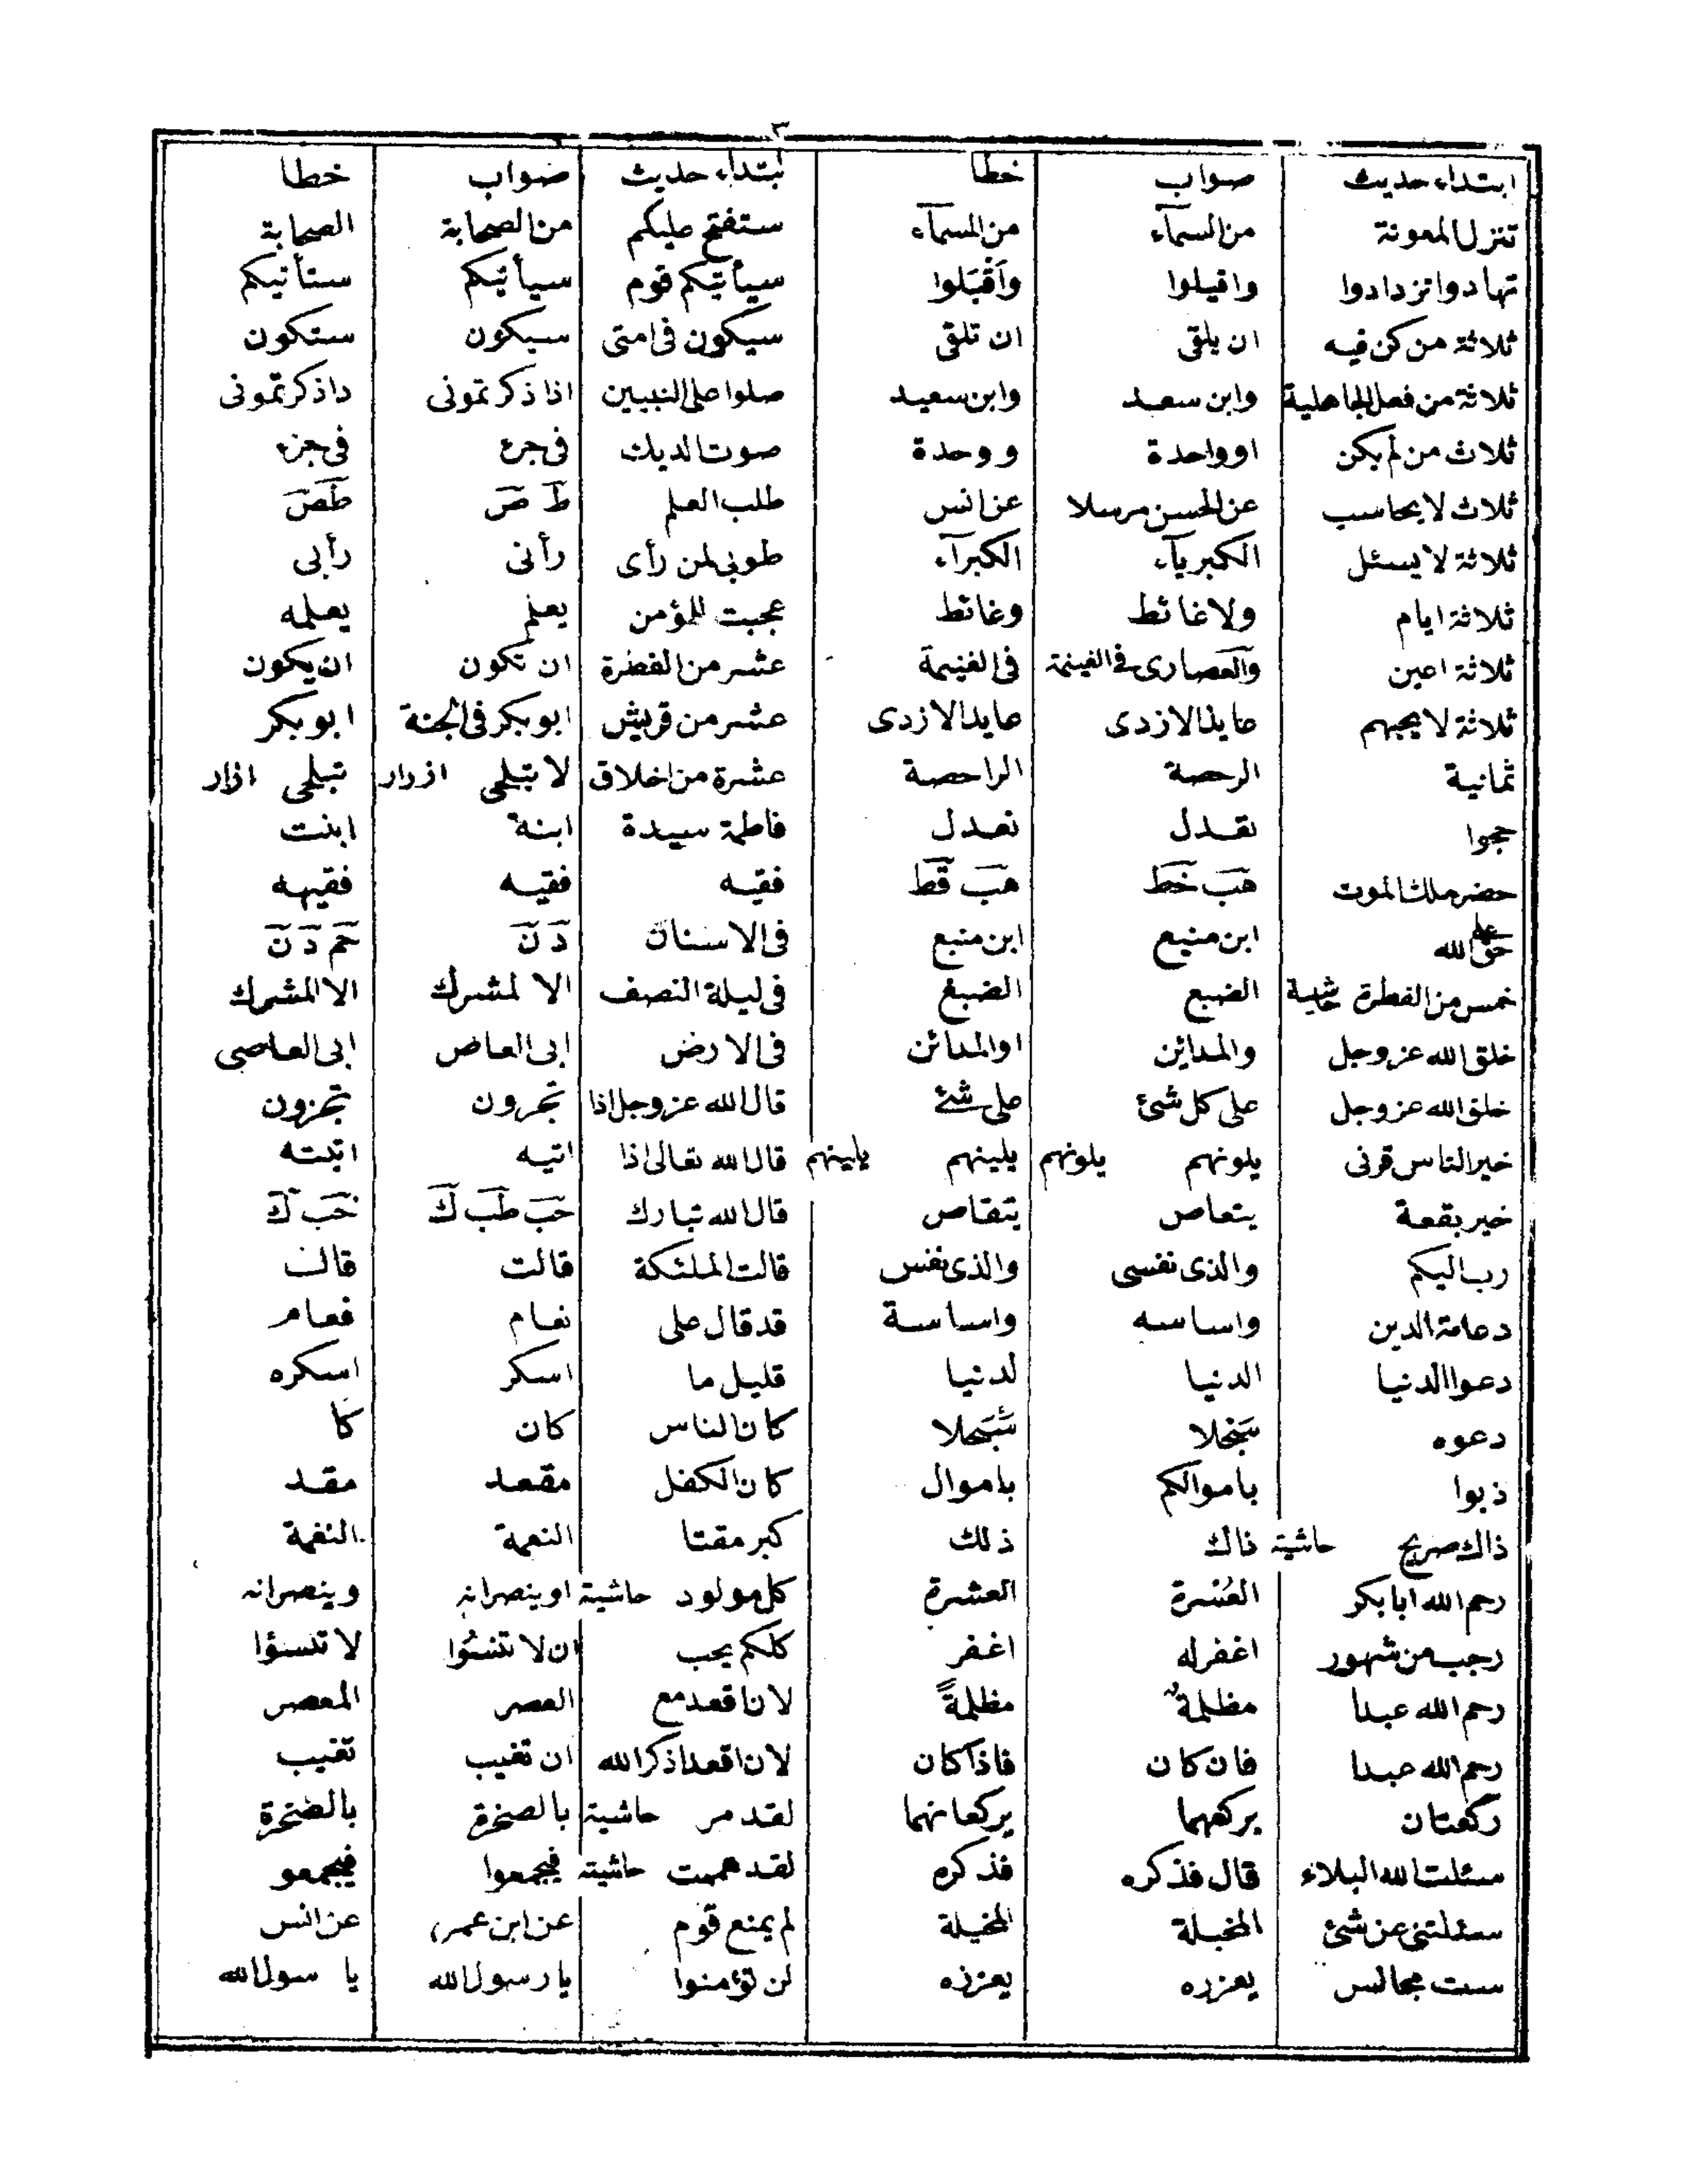 ٣
ابتداء حديث صواب خطا ابتداء حديث صواب خطا
تنزل المعونة من السمآء من المسمآء ستفتح عليكم من الصحابة الصحابة
تهادوا تزدادوا واقيلوا وَاَقْبَلوا سيأتيكم قوم سيأتيكم ستأتيكم
ثلاثة من كن فيه ان يلقى ان تلقى سيكون فى امتى سيكون ستكون
ثلاثة من فعل الجاهلية وابن سعد وابن سعيد صلوا على النبيين اذا ذكرتمونى داذكرتمونى
ثلاث من لم يكن او واحدة و وحدة صوت الديك فى جرء فى جزء
ثلاث لا يحاسب عن الحسن مرسلا عن انس طلب العلم طَ صَ طَصَ
ثلاثة لا يسئل الكبريآء الكبرآء طوبى لمن رأى رأنى رأبى
ثلاثة ايام ولا غائط وغائط عجبت للمؤمن يعلم يعلمه
ثلاثة اعين وآلعصارى فى الغينمة فى الغنيمة عشر من الفطرة ان تكون ان يكون
ثلاثة لا يحبهم عايذ الازدى عايد الازدى عشر من قريش ابوبكر فى الجنة ابوبكر
ثمانية الرحصة الراحصة عشرة من اخلاق لا تبلى ازرار تبلى ازار
حجوا نقدل نعدل فاطمة سيدة ابنة ابنت
حضر ملك الموت هَبَ خَط هَبَ قَط فقيه فقيه فقيهه
حق الله على ابن منيع ابن منبع فى الاسنان دَ نَ حَم دَ نَ
خمس من الفطرة حاشية الضبع الضبغ فى ليلة النصف الا لمشرك الا المشرك
خلق الله عز وجل والمداين او المدائن فى الارض ابى العاص ابى العاصى
خلق الله عز وجل على كل شئ على شئ قال الله عز وجل اذا تجرون تجزون
خير الناس قرنى يلونهم يلونهم يلينهم يلينهم قال الله تعالى اذا اتيه اتيته
خير بقعة يتعاص يتقاص قال الله تبارك حَبَ طَبَ كَ حَبَ كَ
رب اليكم والذى نفسى والذى نفس قالت الملئكة قالت قالت
دعامة الدين واساسه واساسة قد قال على نعام فعام
دعوا الدنيا الدنيا لدنيا قليل ما اسكر اسكره
دعوه سَجْلا كان الناس كان كا
ذبوا باموالكم باموال كان الكفل مقعد مقد
ذاك صريح حاشية ذاك ذلك كبر مقتا النعمة النغمة
رحم الله ابا بكر العُسْرة العشرة كل مولود حاشية او ينصرانه وينصرانه
رجب من شهور اغفر له اغفر كلكم يحب ان لا تنسئوا لا تنسؤا
رحم الله عبدا مظلمةٌ مظلمةً لان اقعد مع العصر المعصر
رحم الله عبدا فان كان فاذا كان لان اقعد اذكر الله ان تغيب تغيب
ركعتان يركعهما يركعانهما لقد مر حاشية بالصخرة بالضخرة
سئلت الله البلاء قال فذكره فذكره لقد هممت حاشية فيجمعوا فيجمعو
سئلتنى عن شئ المخبلة المخيلة لم يمنع قوم عن ابن عمر عن انس
ست مجالس يعزره يعززه لن تؤمنوا يا رسول الله يا سول الله